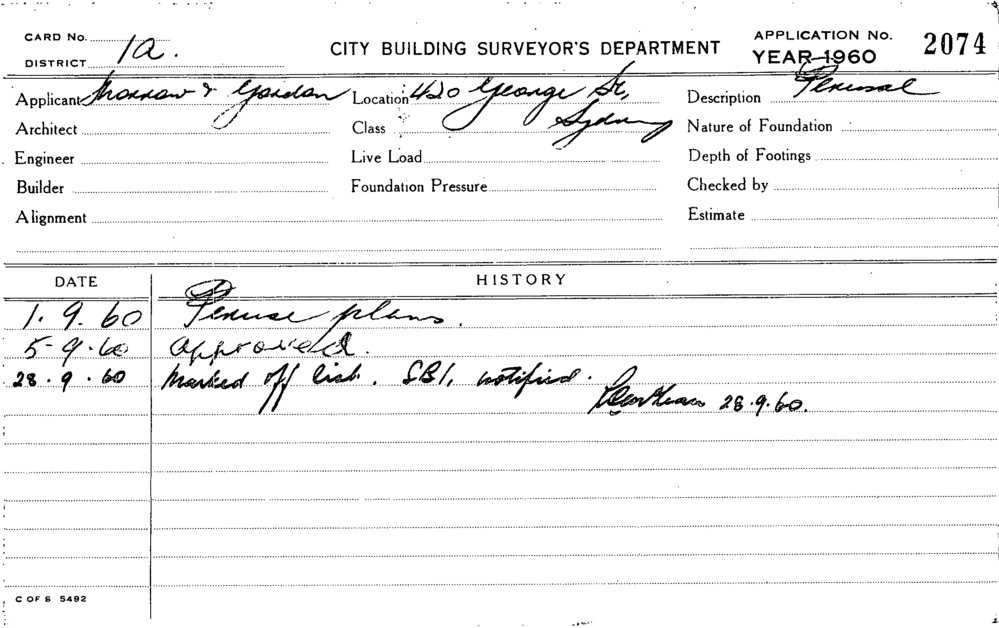 CARD No.
DISTRICT 1a.
CITY BUILDING SURVEYOR'S DEPARTMENT
APPLICATION No. 2074
YEAR 1960
Applicant Morrow & Gordon Location 420 George St, Sydney Description Perusal
Architect Class Nature of Foundation
Engineer Live Load Depth of Footings
Builder Foundation Pressure Checked by
Alignment Estimate
DATE HISTORY
1. 9. 60 Peruse plans.
5-9-60 approved.
28.9.60 Marked off list. SBI. notified.
28.9.60.
C OF S 5492